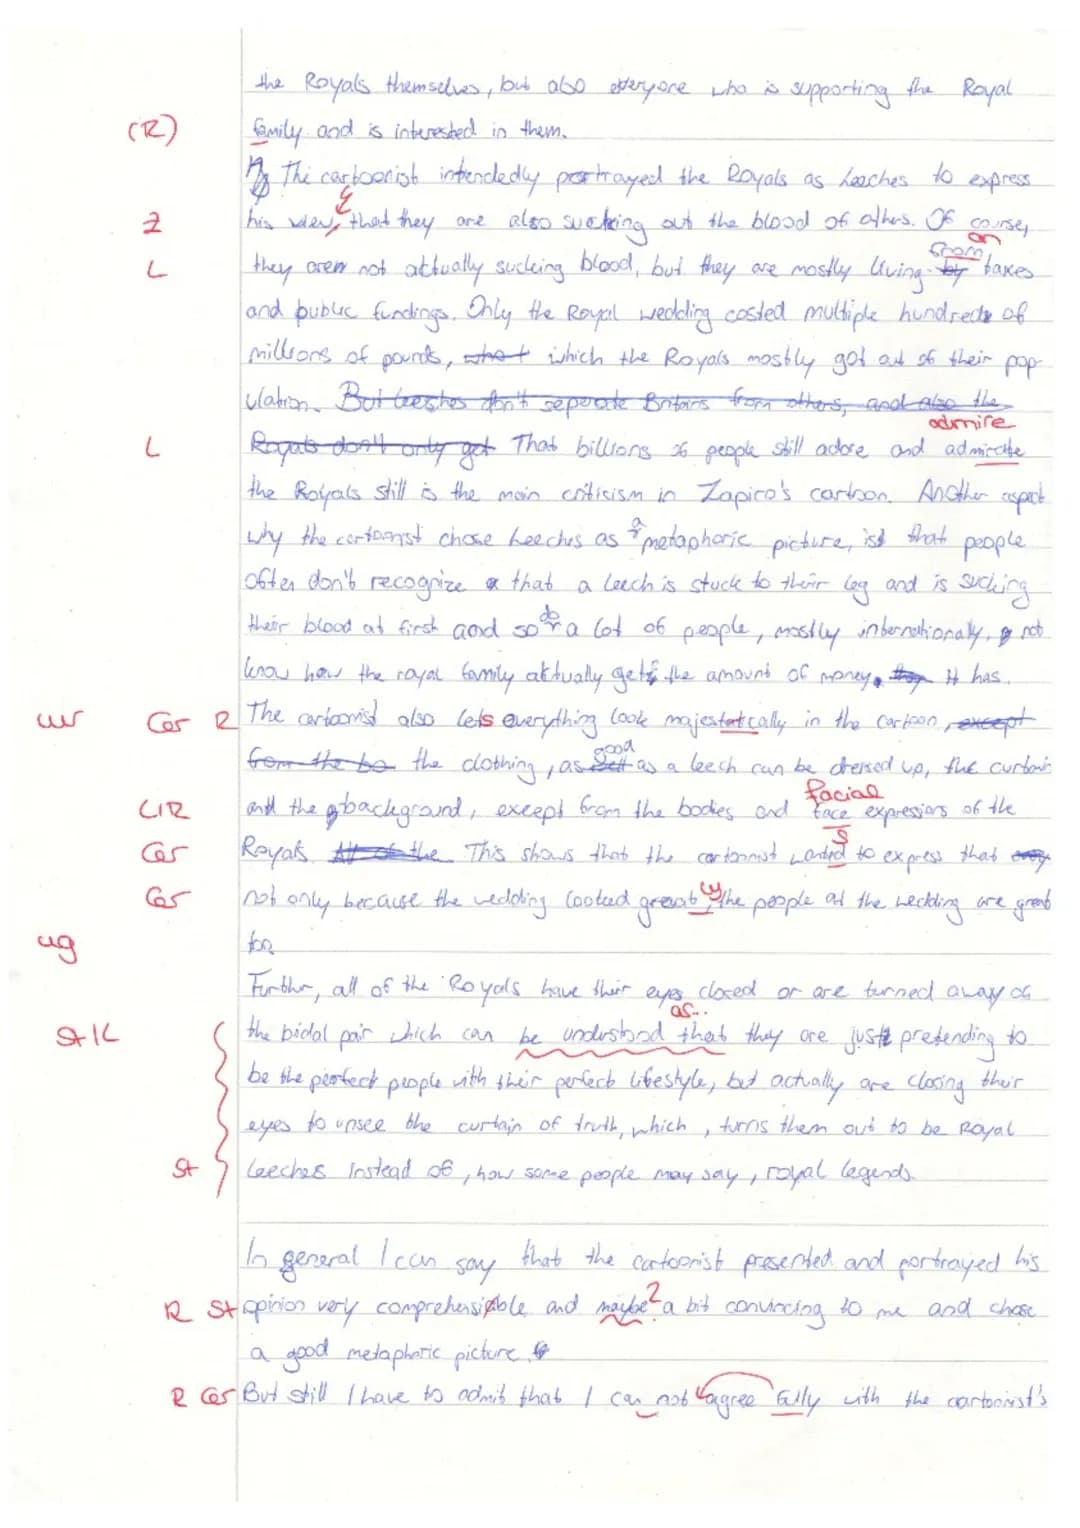 the Royals themselves, but also everyone who is supporting the Royal
(R) family and is interested in them.
The cartoonist intendedly portrayed the Royals as leeches to express
Z his view, that they are also sucking out the blood of others. Of course,
on
from
L they are not aktually sucking blood, but they are mostly living by taxes
and public fundings. Only the Royal wedding costed multiple hundreds of
millions of pounds, what which the Royals mostly got out of their pop-
ulation. But leeches don't seperate Britains from others, and also the
admire
L Royals don't only get That billions of people still adore and admirate
the Royals still is the main criticism in Zapiro's cartoon. Another aspect
a
why the cartoonist chose leeches as metaphoric picture, is that people
often don't recognize that a leech is stuck to their leg and is sucking
do
their blood at first and so a lot of people, mostly internationally, not
know how the royal family aktually gets the amount of money, it has.
ur Gr R The cartoonist also lets everything look majestatically in the cartoon, except
good
from the bo the clothing, as as a leech can be dressed up, the curtain
facial
L/R and the background, except from the bodies and face expressions of the
s
Gr Royals. All of the This shows that the cartoonist wanted to express that
Gr not only because the wedding looked great, the people at the wedding are great
ug too.
Further, all of the Royals have their eyes closed or are turned away of
as...
St K the bidal pair which can be understood that they are just pretending to
be the perfect people with their perfect lifestyle, but actually are closing their
eyes to unsee the curtain of truth, which, turns them out to be Royal
St Leeches instead of, how some people may say, royal legends.
In general I can say that the cartoonist presented and portrayed his
?
R St opinion very comprehensible and maybe a bit convincing to me and chose
a good metaphoric picture.
R Gr But still I have to admit that I can not agree fully with the cartoonist's